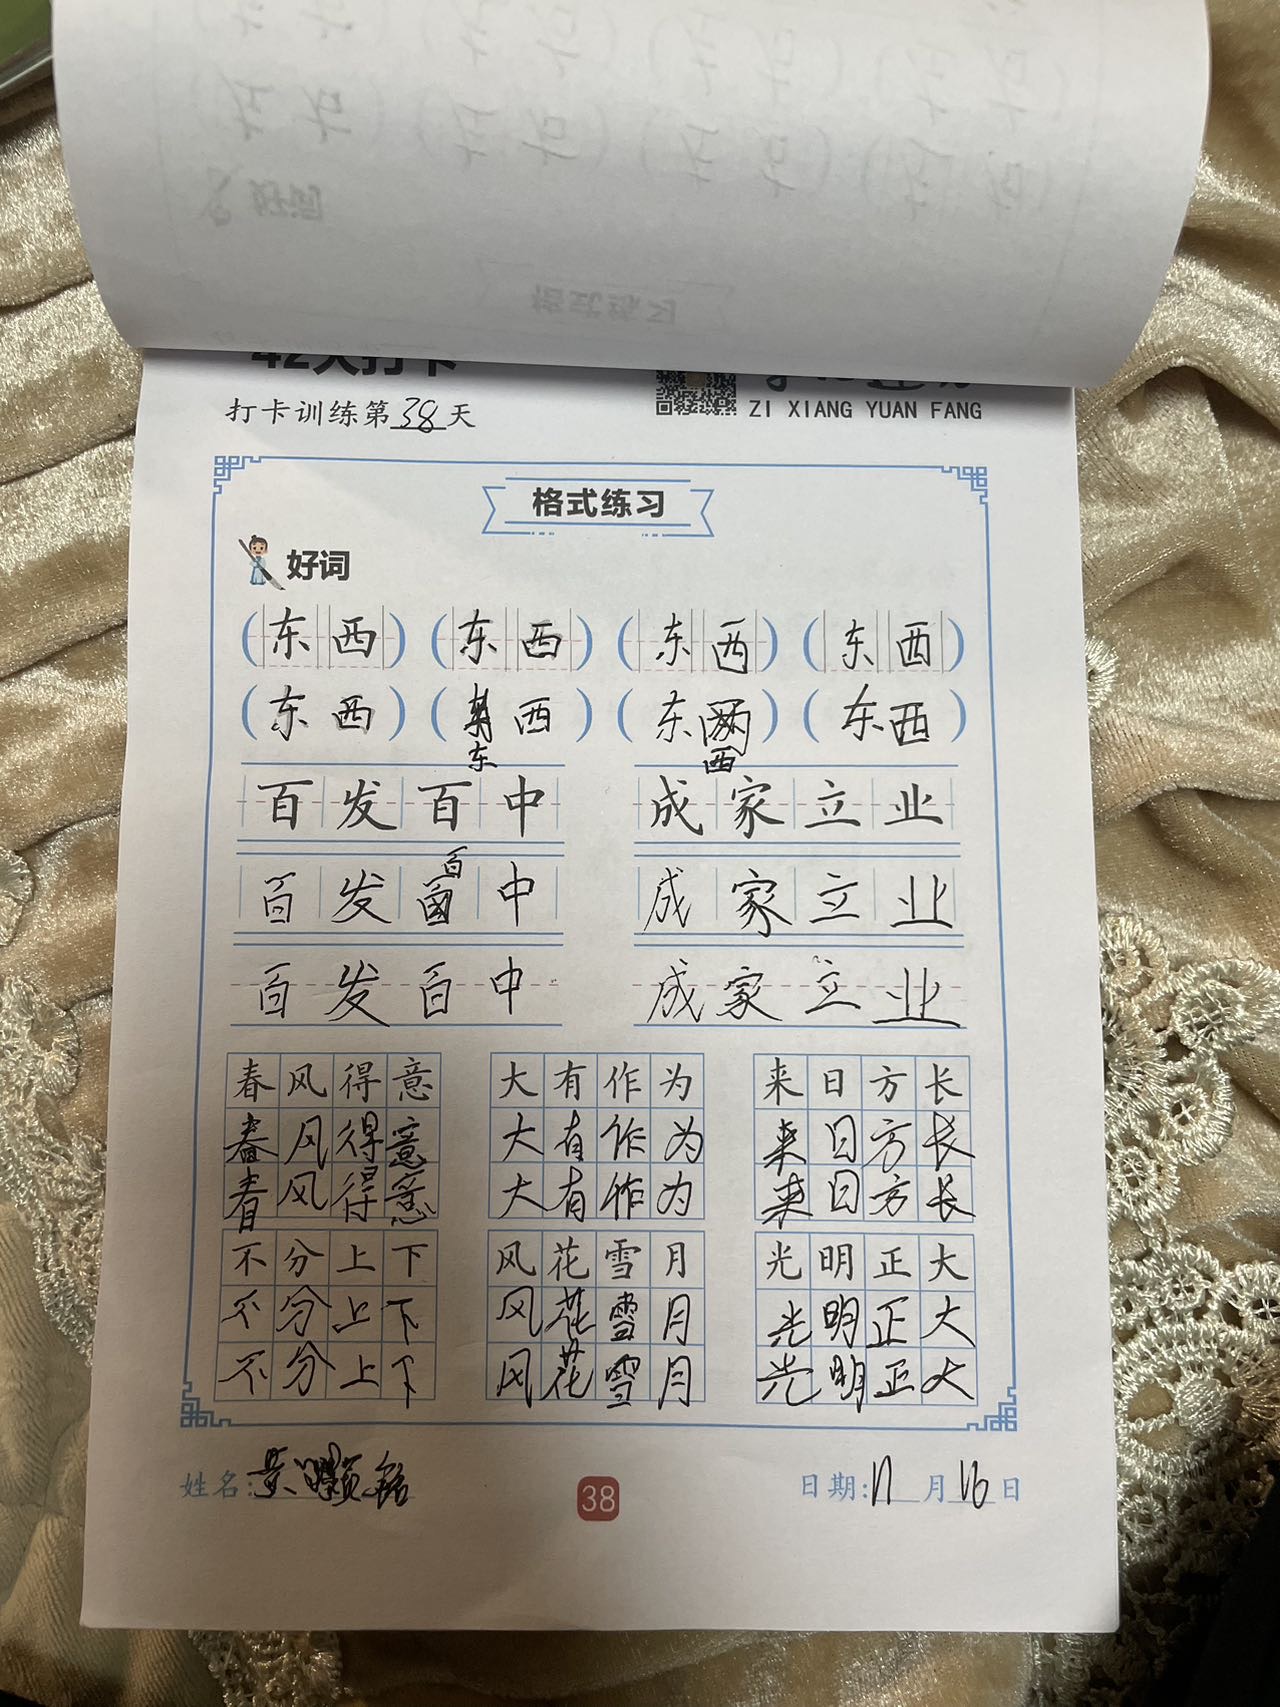 42天打卡
打卡训练第38天
ZI XIANG YUAN FANG
格式练习
好词
(东西) (东西) (东西) (东西)
(东西) (西) (东) (东西)
东 西
百发百中 成家立业
百
百发中 成家立业
百发百中 成家立业
春风得意 大有作为 来日方长
春风得意 大有作为 来日方长
春风得意 大有作为 来日方长
不分上下 风花雪月 光明正大
不分上下 风花雪月 光明正大
不分上下 风花雪月 光明正大
姓名: 38 日期:11月16日